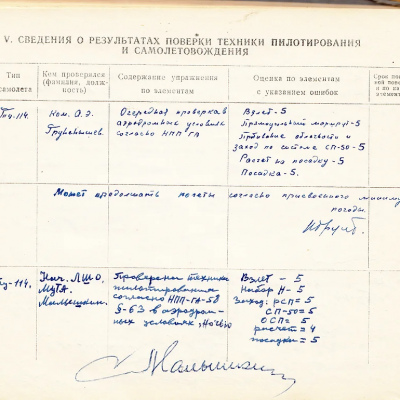 V. СВЕДЕНИЯ О РЕЗУЛЬТАТАХ ПОВЕРКИ ТЕХНИКИ ПИЛОТИРОВАНИЯ
И САМОЛЕТОВОЖДЕНИЯ
Тип
самолета
Кем проверялся
(фамилия, долж-
ность)
Содержание упражнения
по элементам
Оценка по элементам
с указанием ошибок
Ком. А.Э.
Очередная проверка в
аэродромных условиях
согласно НПП ГА
Взлет - 5
Прямоугольный маршрут - 5
Пробивание облачности и
заход по системе СП-50 - 5
Расчет на посадку - 5
Посадка - 5.
Может продолжать полеты согласно присвоенного минимума
погоды.
Ту-114.
Нач. ЛШО.
МУТА.
Малышкин.
Проверена техника
пилотирования
согласно НПП-ГА-58
§-63 в аэродром-
ных условиях, ночью
Взлет - 5
Набор Н - 5
Заход: РСП = 5
СП-50 = 5
ОСП = 5
расчёт = 4
посадки = 5
Малышкин